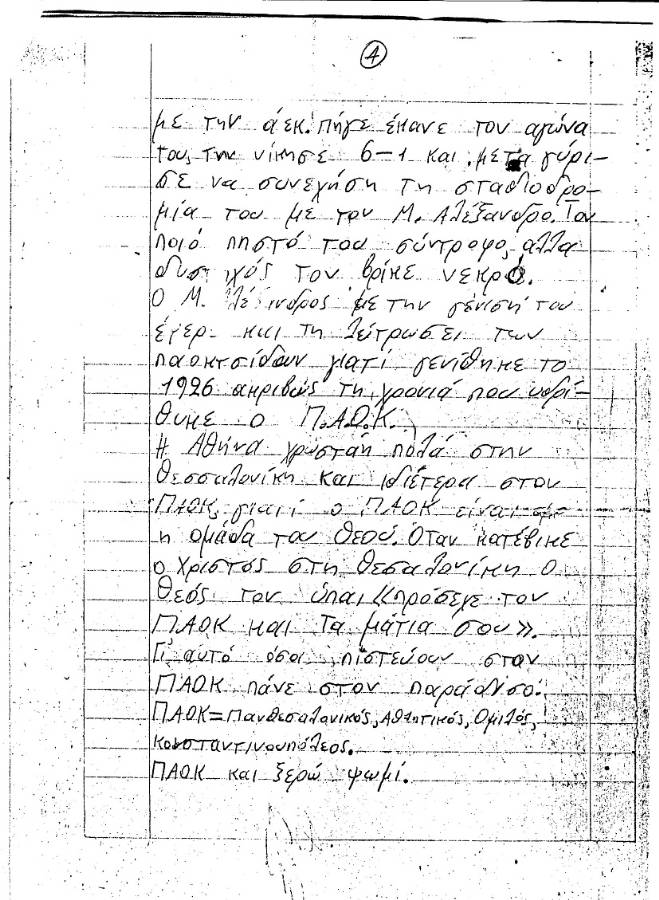 4
με την άεκ. πήγε έκανε τον αγώνα
τους την νίκησε 6-1 και μετά γύρι-
σε να συνεχήση τη σταδιοδρο-
μία του με τον Μ. Αλέξανδρο. Τον
ποιό πηστό του σύντροφο, αλλα
δυσ χός τον βρίκε νεκρό.
Ο Μ. λέ ινδρος με την γένιση του
έφερ και τη λύτρωσει των
παοκτσίδων γιατί γενίθηκε το
1926 ακριβώς τη χρονιά που υδρί-
θυκε ο Π.Α.Ο.Κ.
Η Αθήνα χρωστάη πολά στην
Θεσσαλονίκη και ιδιέτερα στον
ΠΑΟΚ, γιατί ο ΠΑΟΚ είναι
η ομάδα του Θεού. Όταν κατέβικε
ο Χριστός στη Θεσαλονίκη ο
Θεός τον ύπαι «πρόσεχε τον
ΠΑΟΚ και τα μάτια σου».
Γι αυτό όσοι πιστεύουν σταν
ΠΑΟΚ πάνε στον παράδισο.
ΠΑΟΚ=Πανθεσαλονικός, Αθλητικός, Ομιλός,
Κονσταντινουπόλεος.
ΠΑΟΚ και ξερώ ψωμί.